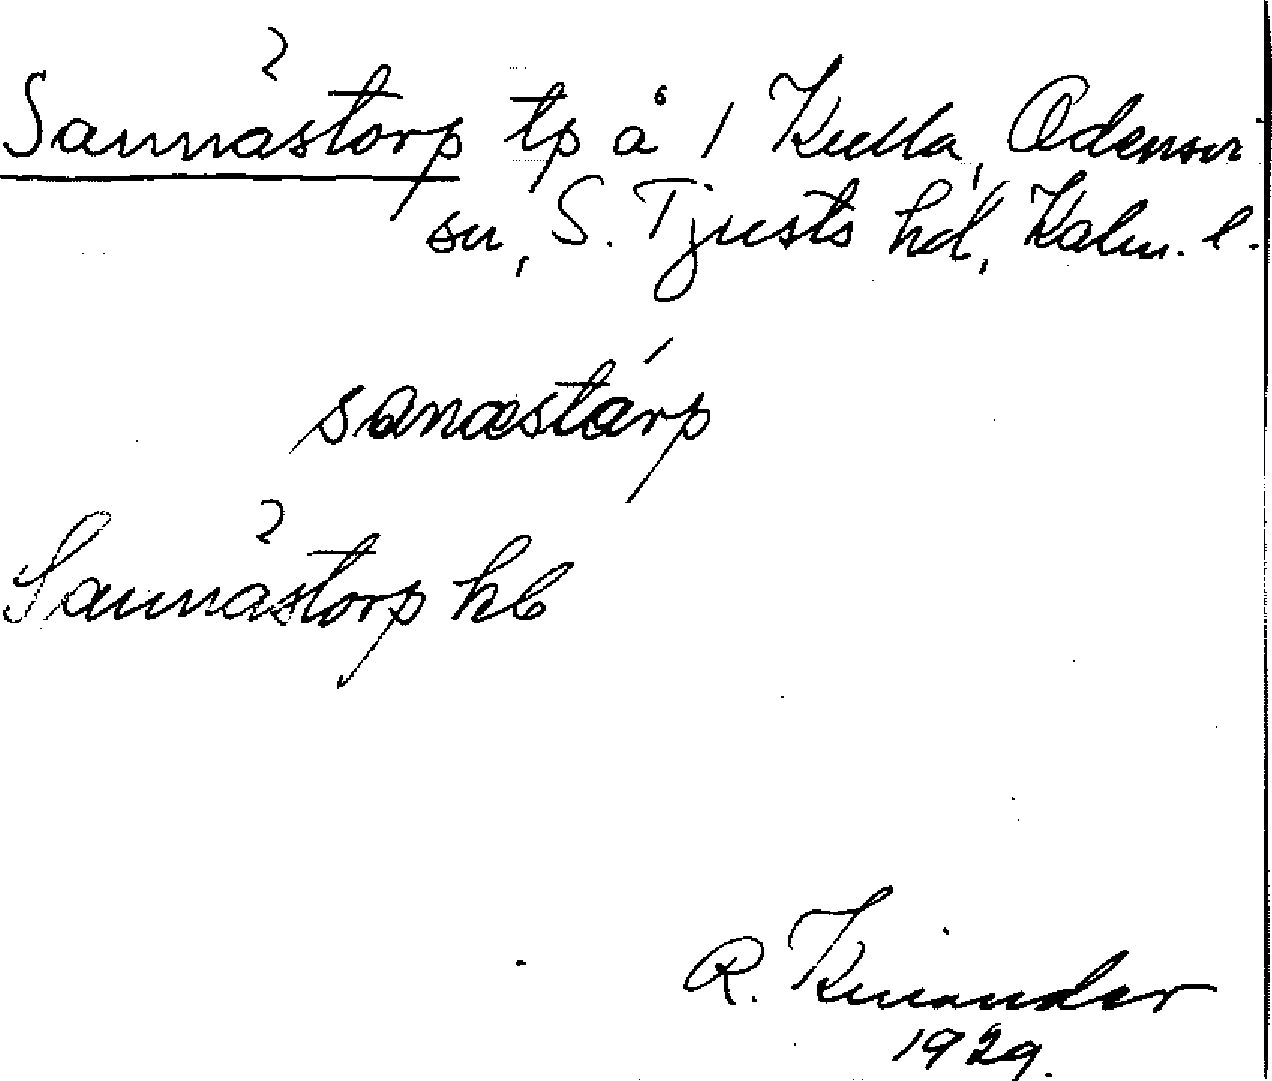 Sannastorp tp å 1 Kulla, Odensvi
sn, S. Tjusts hd, Kalm. l.
sanastårp
Sannastorp kb
R. Kinander
1929.